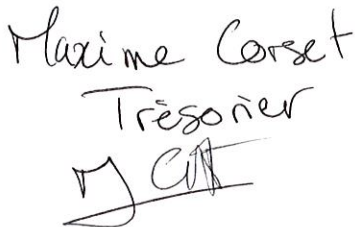 Maxime Corset
Trésorier